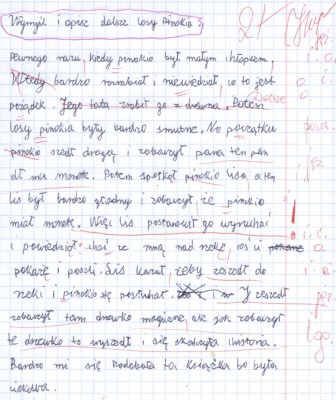 Wymyśl i opisz dalsze losy Pinokia
2+
Pewnego razu, kiedy pinokio był małym chłopcem,
Wtedy bardzo rozrabiał i niewiedział co to jest
pożądek. Jego tata zrobił go z drewna. Potem
losy pinokia były bardzo smutne. Na początku
pinokio szedł drogą i zobaczył pana ten pan
dł mu monete. Potem spotkał pinokio lisa a ten
lis był bardzo głodny i zobaczył, że pinokio
miał monetę. Więc lis postanowił go wyruchać
i powiedział chsi ze mną nad rzekę, coś ci
pokaże i poszli. Lis kazał, żeby zszedł do
rzeki i pinokio się posłuchał. I zszedł
zobaczył tam drzewko magiczne, ale jak zobaczył
te drzewko to wyszedł i się skończyła historia.
Bardzo mi się podobała ta książka bo była
ciekawa.